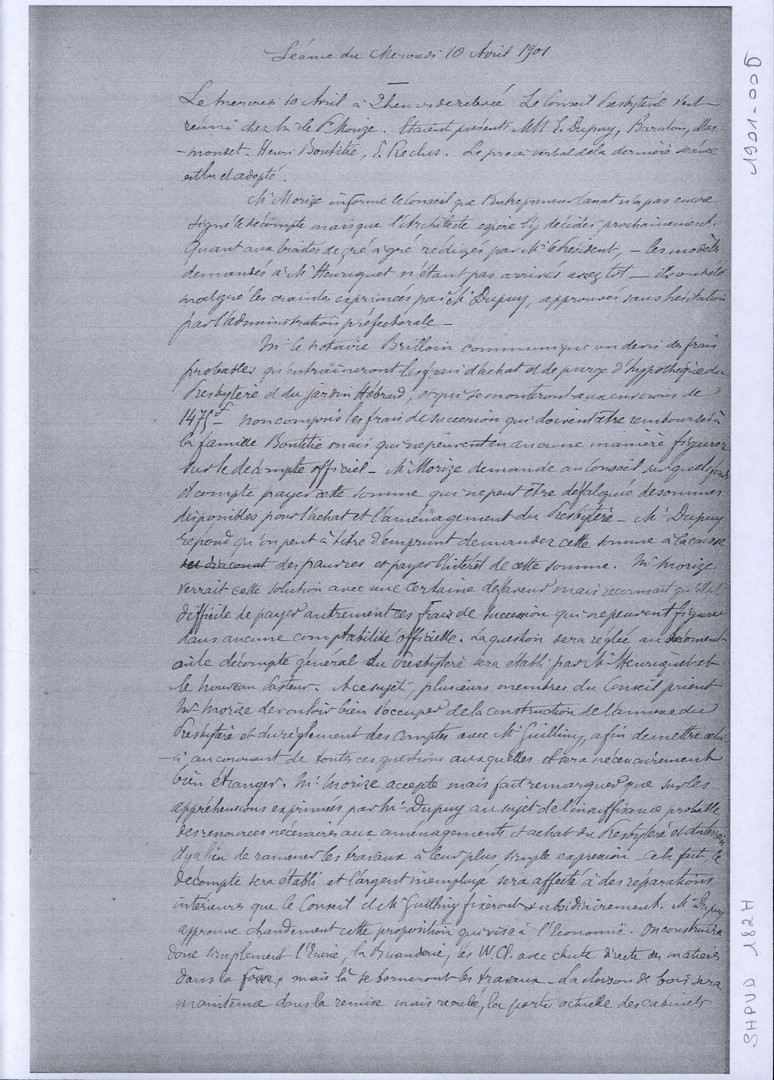 Séance du Mercredi 10 Avril 1901
Le mercredi 10 Avril à 2 heures de relevée Le Conseil Presbytéral s'est
réuni chez Mr le Pr Morize. Etaient présents MM E. Dupuy, Baraton, Mas
-monset. Henri Boutitie, E. Reclus. Le procès verbal de la dernière séance
est lu et adopté.
Mr Morize informe le Conseil que l'Entrepreneur Canat n'a pas encore
signé le décompte mais que l'Architecte espère l'y décider prochainement.
Quant aux traités de gré à gré rédigés par Mr le Président, - les modèles
demandés à Mr Henriquet n'étant pas arrivés assez tôt - ils ont été
malgré les craintes exprimées par Mr Dupuy, approuvés sans hésitation
par l'administration préfectorale -
Mr le notaire Brilloin communique un devis des frais
probables qu'entraîneront les frais d'achat et de purge d'hypothèque du
Presbytère et du jardin Hébrard, et qui se monteront aux environs de
1475f - non compris les frais de succession qui doivent être remboursés à
la famille Boutitie mais qui ne peuvent en aucune manière figurer
sur le décompte officiel - Mr Morize demande au Conseil sur quel
et compte payer cette somme qui ne peut être défalquée des sommes
disponibles pour l'achat et l'aménagement du Presbytère - Mr Dupuy
répond qu'on peut à titre d'emprunt demander cette somme à la caisse
du diaconat des pauvres et payer l'intérêt de cette somme. Mr Morize
verrait cette solution avec une certaine défaveur mais reconnaît qu'il est
difficile de payer autrement ces frais de succession qui ne peuvent figurer
dans aucune comptabilité officielle. La question sera réglée au moment
où le décompte général du Presbytère sera établi par Mr Henriquet et
le nouveau Pasteur. A ce sujet, plusieurs membres du Conseil prient
Mr Morize de vouloir bien s'occuper de la construction de l'annexe du
Presbytère et du règlement des comptes avec Mr Guilhiny, afin de mettre celui
-ci au courant de toutes ces questions auxquelles il sera nécessairement
bien étranger. Mr Morize accepte mais fait remarquer que sur les
appréhensions exprimées par Mr Dupuy au sujet de l'insuffisance probable
des ressources nécessaires aux aménagements et achat du Presbytère et du terrain
il y a lieu de ramener les travaux à leur plus simple expression. Cela fait, le
décompte sera établi et l'argent inemployé sera affecté à des réparations
intérieures que le Conseil et Mr Guilhiny fixeront subsidiairement. Mr Dupuy
approuve chaudement cette proposition qui vise à l'Economie. On construira
donc simplement l'Ecurie, la Buanderie, les W.C. avec chute directe des matières
dans la fosse, mais là se borneront les travaux. La cloison de bois sera
maintenue dans la remise mais reculée, la porte actuelle des cabinets
1901-005
SHPVD 182H